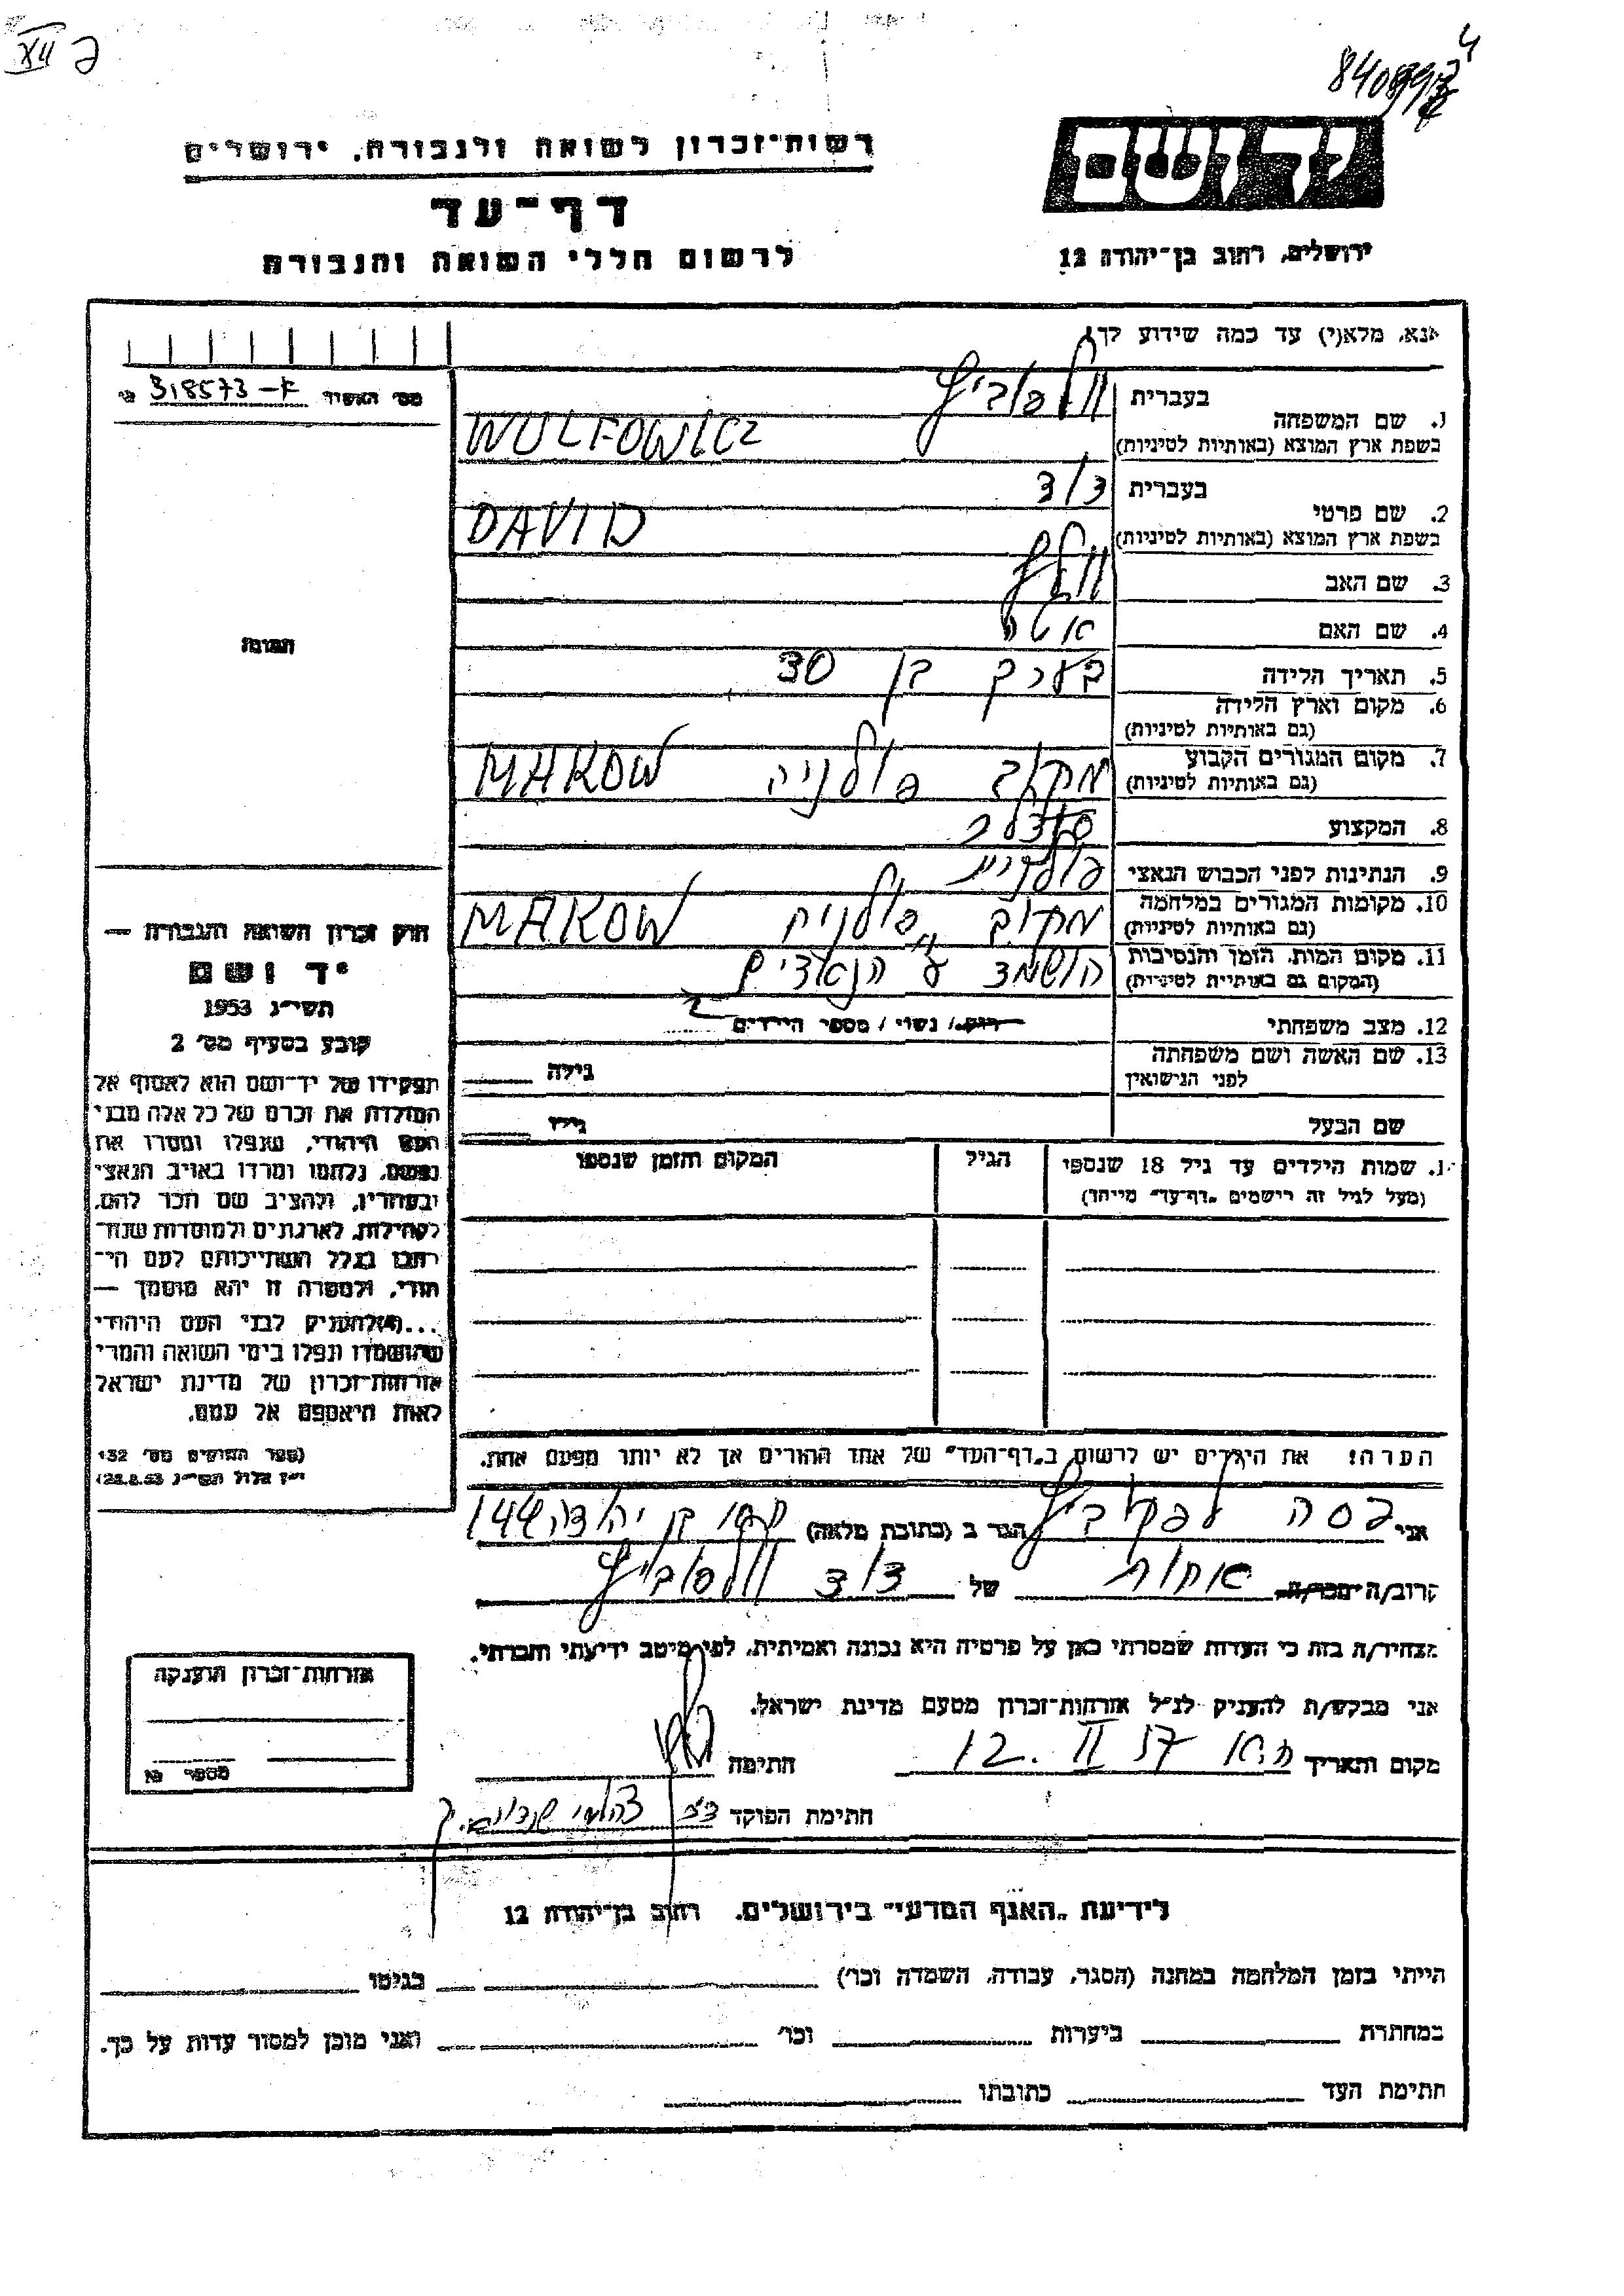 XII
רשות־זכרון לשואה ולגבורה, ירושלים
דף־עד
לרשום חללי השואה והגבורה
יד ושם
ירושלים, רחוב בן־יהודה 12
אנא, מלא(י) עד כמה שידוע לך
מס' האשיר 318573-F
1. שם המשפחה
בעברית וולפוביץ
בשפת ארץ המוצא (באותיות לטיניות) WOLFOWICZ
2. שם פרטי
בעברית דוד
בשפת ארץ המוצא (באותיות לטיניות) DAVID
3. שם האב וולף
4. שם האם איטה
5. תאריך הלידה בערך בן 30
6. מקום וארץ הלידה
(גם באותיות לטיניות)
7. מקום המגורים הקבוע מקוב פולניה MAKOW
(גם באותיות לטיניות)
8. המקצוע סנדלר
9. הנתינות לפני הכבוש הנאצי פולנית
10. מקומות המגורים במלחמה מקוב פולניה MAKOW
(גם באותיות לטיניות)
11. מקום המות, הזמן והנסיבות הושמד ע"י הנאצים
(המקום גם באותיות לטיניות)
12. מצב משפחתי רווק / נשוי / מספר הילדים
13. שם האשה ושם משפחתה גילה
לפני הנישואין
שם הבעל גילו
1. שמות הילדים עד גיל 18 שנספו הגיל המקום והזמן שנספו
(מעל לגיל זה רישמים „דף־עד" מייחד)
הערה: את הילדים יש לרשום ב„דף־העד" של אחד ההורים אך לא יותר מפעם אחת.
תמונה
חוק זכרון השואה והגבורה —
יד ושם
תשי"ג 1953
קובע בסעיף מס' 2
תפקידו של יד־ושם הוא לאסוף אל
המולדת את זכרם של כל אלה מבני
העם היהודי, שנפלו ומסרו את
נפשם, נלחמו ומרדו באויב הנאצי
ובעוזריו, ולהציב שם וזכר להם,
לקהילות, לארגונים ולמוסדות שנח־
רבו בגלל השתייכותם לעם הי־
הודי, ולמטרה זו יהא מוסמך —
...(4) להעניק לבני העם היהודי
שהושמדו ונפלו בימי השואה והמרי
אזרחות־זכרון של מדינת ישראל
לאות היאספם אל עמם.
(ספר החוקים מס' 132
י"ז אלול תשי"ג 28.8.53)
אני פסה הגר ב (כתובת מלאה) בן יהודה 144
קרוב/ה מכר/ה אחות של דוד וולפוביץ
מצהיר/ה בזה כי העדות שמסרתי כאן על פרטיה היא נכונה ואמיתית, לפי מיטב ידיעתי והכרתי.
אני מבקש/ת להעניק לנ"ל אזרחות־זכרון מטעם מדינת ישראל.
מקום והתאריך 12. II 57 חתימה
חתימת הפוקד
אזרחות־זכרון הוענקה
מספר
לידיעת „האגף המדעי" בירושלים, רחוב בן־יהודה 12
הייתי בזמן המלחמה במחנה (הסגר, עבודה, השמדה וכו') בגיטו
במחתרת ביערות וכו' ואני מוכן למסור עדות על כך.
חתימת העד כתובתו